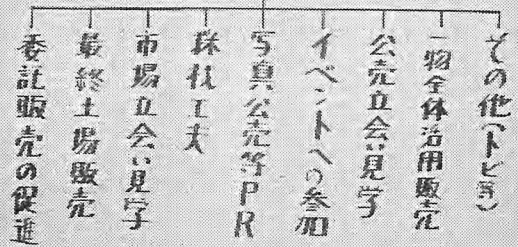 その他(トビ等)
一物全体活用販売
公売立会い見学
イベントへの参加
写真公売等PR
採材工夫
市場立会い見学
最終土場販売
委託販売の促進